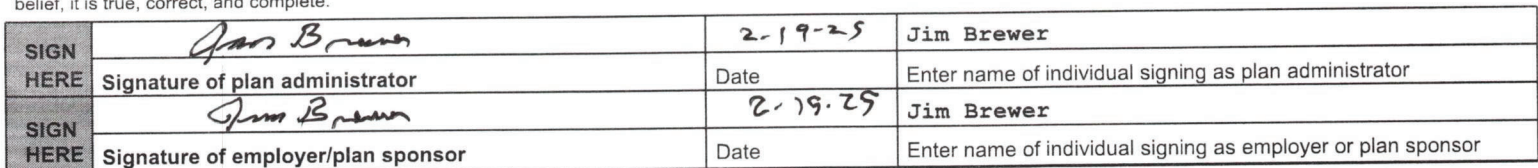 belief, it is true, correct, and complete.
SIGN HERE Jim Brewer 2-19-25 Jim Brewer
Signature of plan administrator Date Enter name of individual signing as plan administrator
SIGN HERE Jim Brewer 2.19.25 Jim Brewer
Signature of employer/plan sponsor Date Enter name of individual signing as employer or plan sponsor